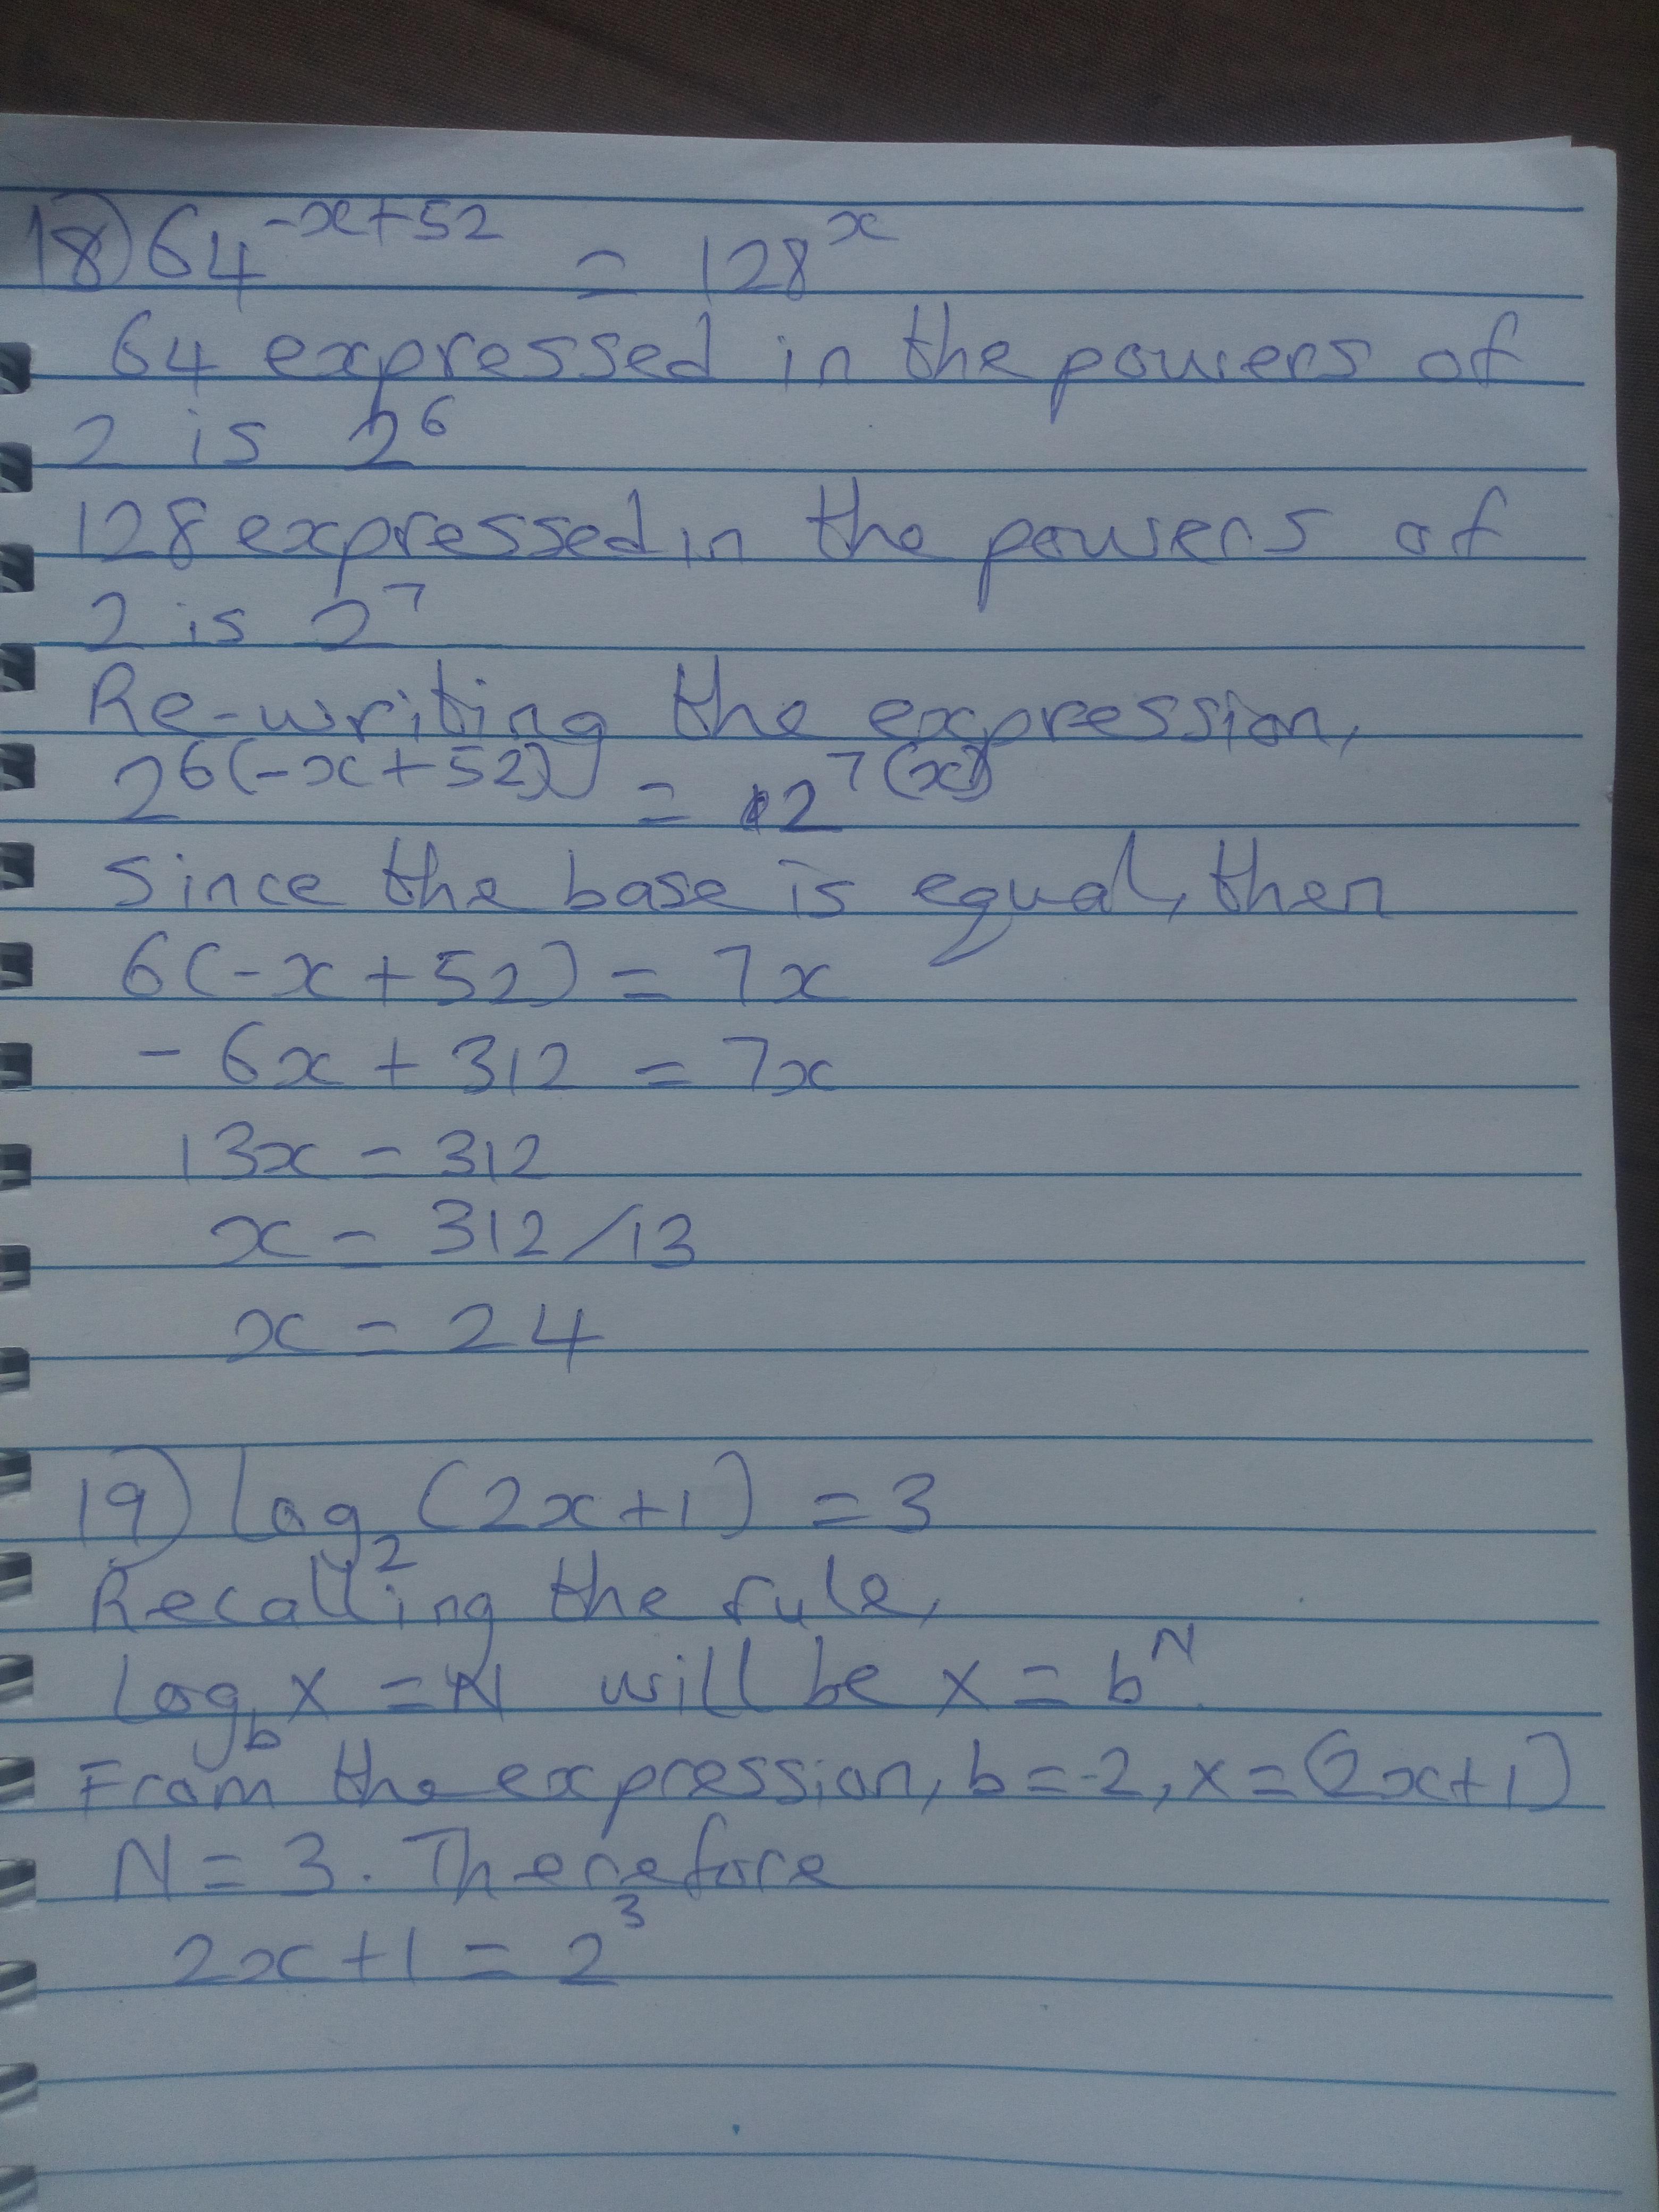 18) 64^(-x+52) = 128^x
64 expressed in the powers of
2 is 2^6
128 expressed in the powers of
2 is 2^7
Re-writing the expression,
2^(6(-x+52)) = 2^(7(x))
Since the base is equal, then
6(-x+52) = 7x
-6x + 312 = 7x
13x = 312
x = 312/13
x = 24
19) Log₂(2x+1) = 3
Recalling the rule,
Log_b X = N will be X = b^N.
From the expression, b = 2, X = (2x+1)
N = 3. Therefore
2x+1 = 2^3